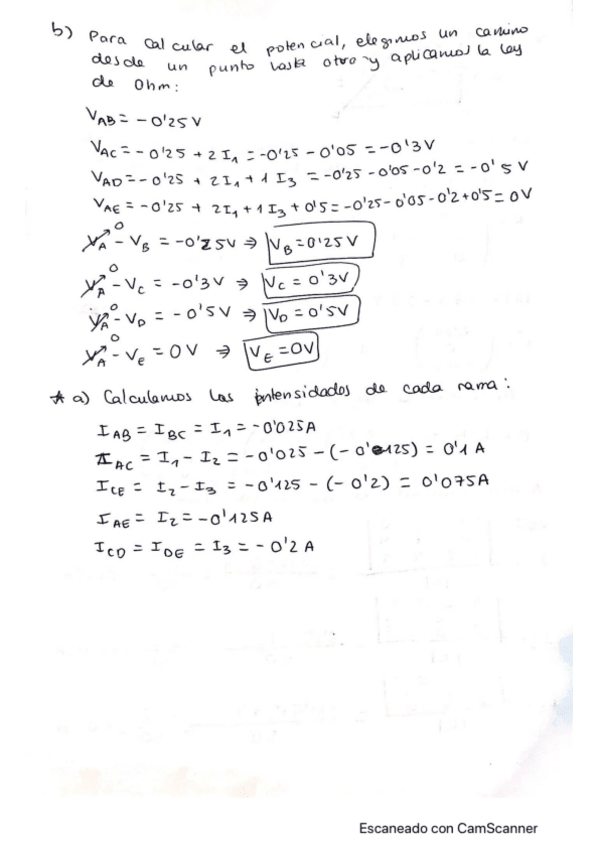 b) Para calcular el potencial, elegimos un camino
desde un punto hasta otro y aplicamos la ley
de Ohm:
V_AB = -0'25 V
V_AC = -0'25 + 2 I_1 = -0'25 - 0'05 = -0'3 V
V_AD = -0'25 + 2 I_1 + 1 I_3 = -0'25 - 0'05 - 0'2 = -0'5 V
V_AE = -0'25 + 2 I_1 + 1 I_3 + 0'5 = -0'25 - 0'05 - 0'2 + 0'5 = 0 V
V_A 0 - V_B = -0'25 V ⇒ V_B = 0'25 V
V_A 0 - V_C = -0'3 V ⇒ V_C = 0'3 V
V_A 0 - V_D = -0'5 V ⇒ V_D = 0'5 V
V_A 0 - V_E = 0 V ⇒ V_E = 0 V
* a) Calculamos las intensidades de cada rama:
I_AB = I_BC = I_1 = -0'025 A
I_AC = I_1 - I_2 = -0'025 - (-0'125) = 0'1 A
I_CE = I_2 - I_3 = -0'125 - (-0'2) = 0'075 A
I_AE = I_2 = -0'125 A
I_CD = I_DE = I_3 = -0'2 A
Escaneado con CamScanner